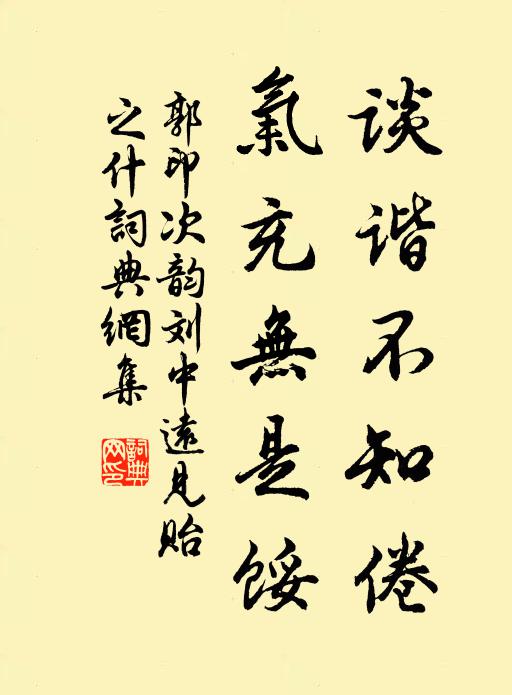 谈谐不知倦
氣充無是馁
郭印次韵刘中遠見贻
之什詞典網集
詞典网印